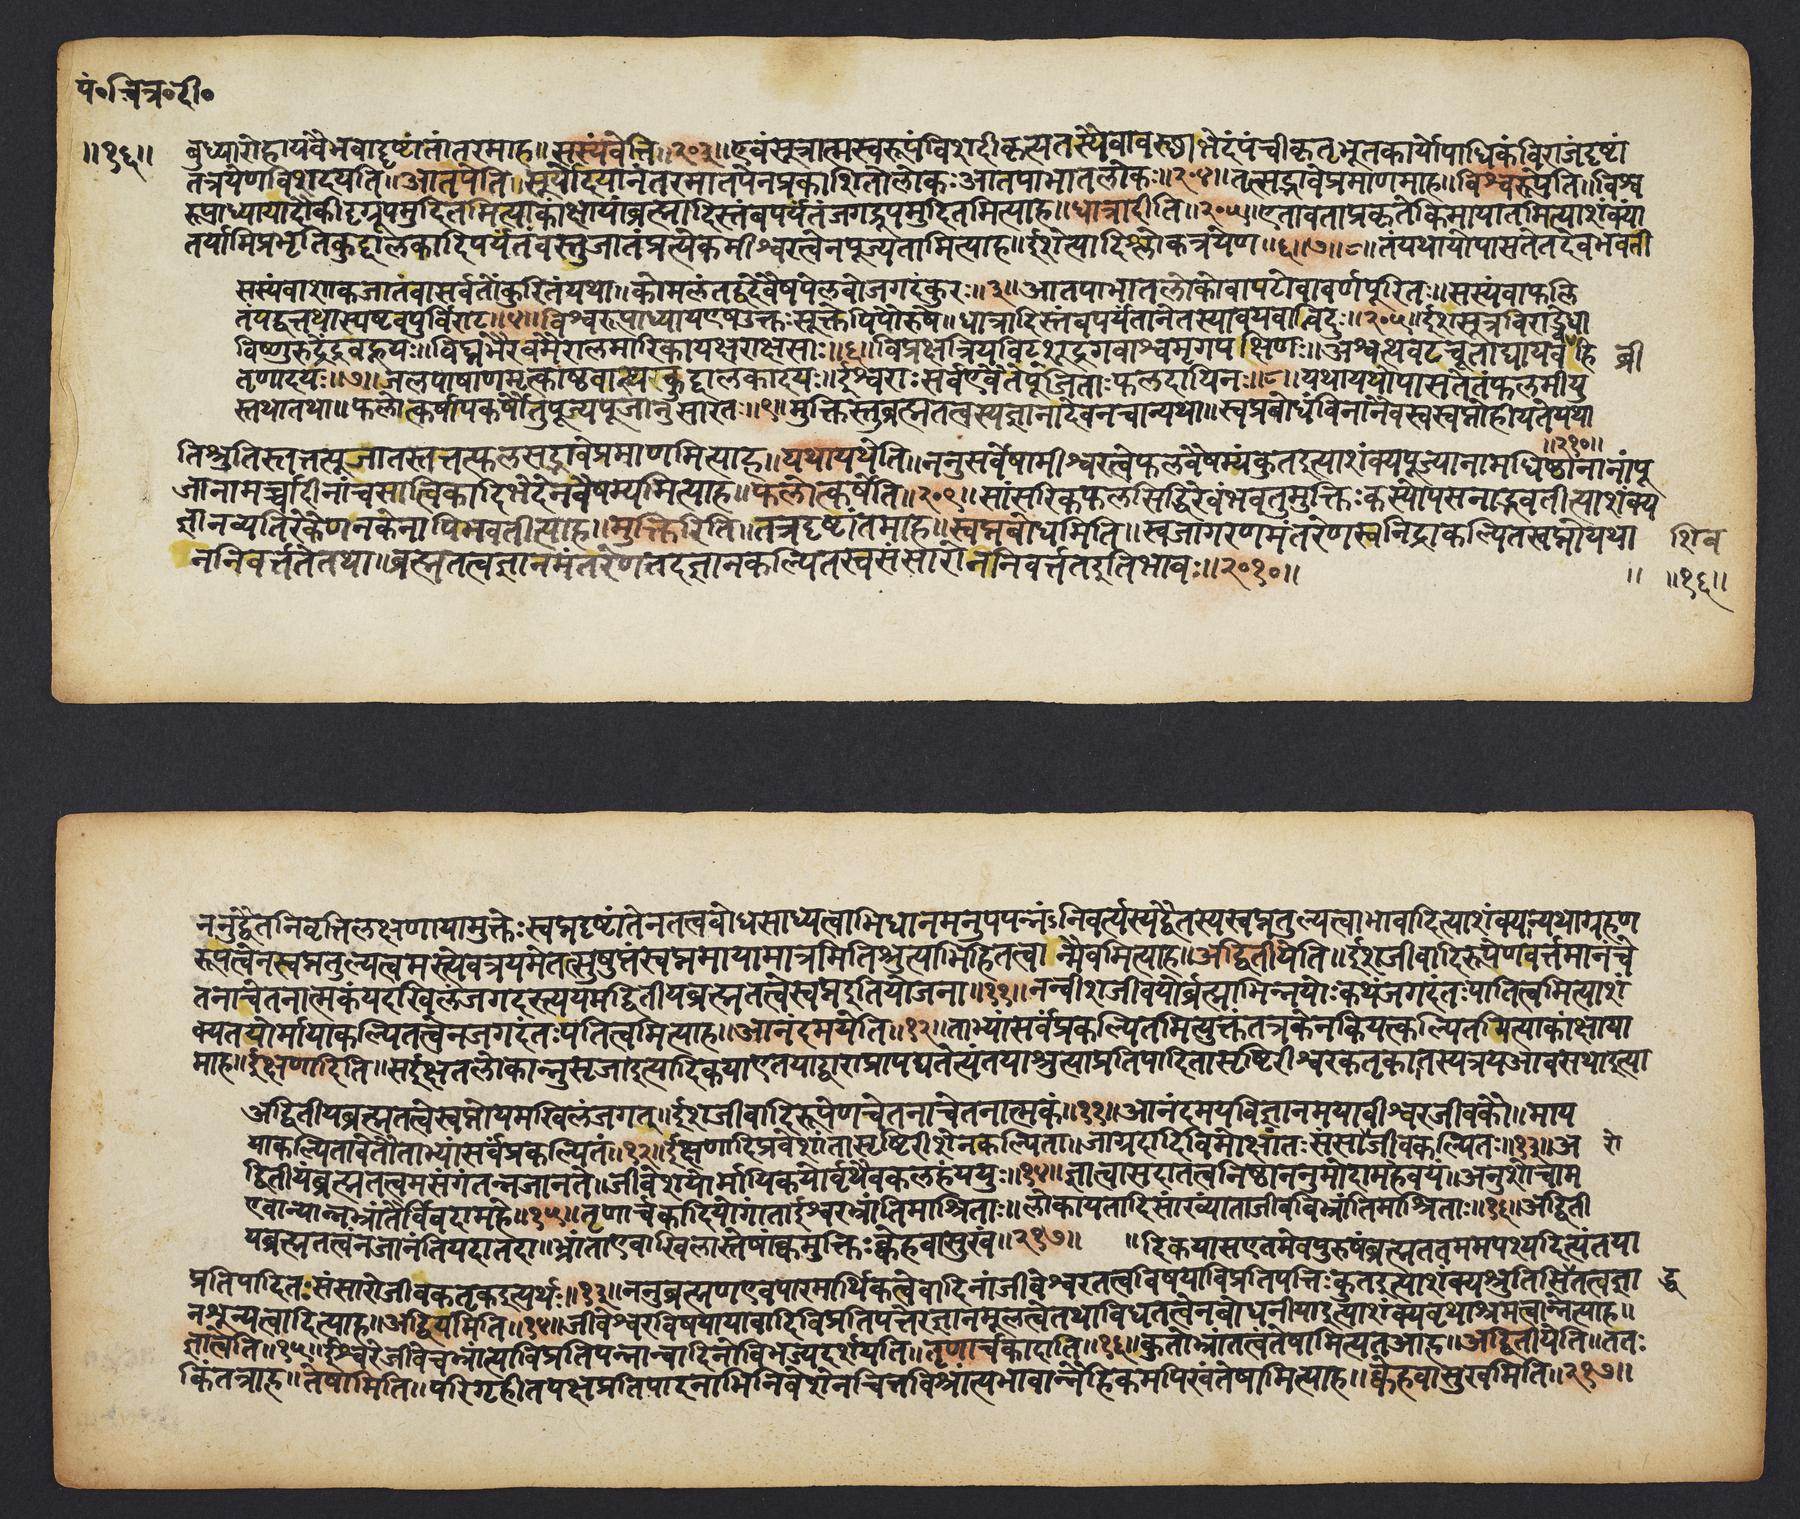 पं॰चित्र॰दी॰
॥१६॥ बुध्यारोहायवैभवादृष्टांतांतरमाह॥सस्यंवेति॥२०३॥एवंसूत्रात्मस्वरूपंविशदीकृत्यतस्यैवावस्थाभेदंपंचीकृतभूतकार्योपाधिकंविराजंदृष्टां
तत्रयेणविशदयति॥आतपेति॥सूर्योदयानंतरमातपेनप्रकाशितोलोकःआतपाभातलोकः॥२०४॥तत्सद्भावेप्रमाणमाह॥विश्वरूपेति॥विश्व
रूपाध्यायादौकीदृग्रूपमुदितमित्याकांक्षायांब्रह्मादिस्तंबपर्यंतंजगद्रूपमुदितमित्याह॥धात्रादीति॥२०५॥एतावताप्रकृतेकिमायातमित्याशंक्यां
तर्यामिप्रभृतिकुद्दालकादिपर्यंतंवस्तुजातंप्रत्येकमीश्वरत्वेनपूज्यतामित्याह॥ईशेत्यादिश्लोकत्रयेण॥६॥७॥८॥तंयथायथोपासतेतदेवभवती
सस्यंवाशाकजातंवासर्वतोंकुरितंयथा॥कोमलंतद्वदेवैषपेलवोजगदंकुरः॥३॥आतपाभातलोकोवापटोवावर्णपूरितः॥सस्यंवाफलि
तंयद्वत्तथास्पष्टवपुर्विराट्॥४॥विश्वरूपाध्यायएषउक्तःसूक्तेपिपौरुषे॥धात्रादिस्तंबपर्यंतानेतस्यावयवान्विदुः॥२०५॥ईशसूत्रविराड्वेधा
विष्णुरुद्रेंद्रवह्नयः॥विघ्नभैरवमैरालमारिकायक्षराक्षसाः॥६॥विप्रक्षत्रियविट्शूद्रगवाश्वमृगपक्षिणः॥अश्वत्थवटचूताद्यायवव्रीहि व्री
तृणादयः॥७॥जलपाषाणमृत्काष्ठवास्यकुद्दालकादयः॥ईश्वराःसर्वएवैतेपूजिताःफलदायिनः॥८॥यथायथोपासतेतंफलमीयु
स्तथातथा॥फलोत्कर्षापकर्षौतुपूज्यपूजानुसारतः॥९॥मुक्तिस्तुब्रह्मतत्वस्यज्ञानादेवनचान्यथा॥स्वप्रबोधंविनानैवस्वस्वप्नोहीयतेयथा
॥२१०॥
तिश्रुतिस्तत्तत्पूजातस्तत्तत्फलसद्भावेप्रमाणमित्याह॥यथायथेति॥ननुसर्वेषामीश्वरत्वेफलवैषम्यंकुतइत्याशंक्यपूज्यानामधिष्ठानानांपू
जानामर्चादीनांचसात्विकादिभेदेनवैषम्यमित्याह॥फलोत्कर्षेति॥२०९॥सांसरिकफलसिद्धिरेवंभवतुमुक्तिःकस्योपसनाद्भवतीत्याशंक्य
ज्ञानव्यतिरेकेणनकेनापिभवतीत्याह॥मुक्तिरिति॥तत्रदृष्टांतमाह॥स्वप्नबोधमिति॥स्वजागरणमंतरेणस्वनिद्राकल्पितस्वप्नोयथा शिव
ननिवर्त्ततेतथा॥ब्रह्मतत्वज्ञानमंतरेणतदज्ञानकल्पितस्वसंसारोननिवर्त्ततइतिभावः॥२०१०॥ ॥ ॥१६॥
ननुद्वैतनिवृत्तिलक्षणायामुक्तेःस्वप्नदृष्टांतेनतत्वबोधसाध्यत्वाभिधानमनुपपन्नंऽनिवर्त्यस्यद्वैतस्यस्वप्नतुल्यत्वाभावादित्याशंक्यान्यथाग्रहण
रूपत्वेनस्वप्नतुल्यत्वमस्त्येवत्रयमेतत्सुषुप्तंस्वप्नमायामात्रमितिश्रुत्याभिहितत्वान्मैवमित्याह॥अद्वितीयेति॥ईशजीवादिरूपेणवर्त्तमानंचे
तनाचेतनात्मकंयदखिलंजगदस्त्ययमद्वितीयब्रह्मतत्वेस्वप्नइतियोजना॥११॥नन्वीशजीवयोर्ब्रह्माभिन्नयोःकथंजगदंतःपातित्वमित्याशं
क्यतयोर्मायाकल्पितत्वेनजगदंतःपतित्वमित्याह॥आनंदमयेति॥१२॥ताभ्यांसर्वंप्रकल्पितमित्युक्तंतत्रकेनकियत्कल्पितमित्याकांक्षाया
माह॥ईक्षणादिति॥सईक्षतलोकान्नुसृजाइत्यादिकयाएतयाद्वाराप्रापद्यतेत्यंतयाश्रुत्याप्रतिपादितासृष्टिरीश्वरकतृकातस्यत्रयआवसथाइत्या
अद्वितीयब्रह्मतत्वेस्वप्नोयमखिलंजगत्॥ईशजीवादिरूपेणचेतनाचेतनात्मकं॥११॥आनंदमयविज्ञानमयावीश्वरजीवकौ॥माय
याकल्पितावेतौताभ्यांसर्वंप्रकल्पितं॥१२॥ईक्षणादिप्रवेशांतासृष्टिरीशेनकल्पिता॥जाग्रदादिविमोक्षांतःससाजीवकल्पितः॥१३॥अ रो
द्वितीयब्रह्मतत्वमसंगतन्नजानते॥जीवेशयोर्मायिकयोर्वृथैवकलहंययुः॥१४॥ज्ञात्वासदातत्वनिष्ठाननुमोदामहेवयं॥अनुशोचाम
एवान्यान्नभ्रांतैर्विवदामहे॥१५॥तृणार्चकादियोगांताईश्वरभ्रांतिमाश्रिताः॥लोकायतादिसांख्यांताजीवविभ्रांतिमाश्रिताः॥१६॥अद्विती
यब्रह्मतत्वंनजानंतियदातदा॥भ्रांताएवाखिलास्तेषांक्वमुक्तिःक्वेहवासुखं॥२१७॥ ॥दिकयासएतमेवपुरुषंब्रह्मततममपश्यदित्यंतया
प्रतिपादितःसंसारोजीवकतृकइत्यर्थः॥१३॥ननुब्रह्मणएवपारमार्थिकत्वेवादिनांजीवेश्वरतत्वविषयाविप्रतिपत्तिःकुतइत्याशंक्यश्रुतिसितत्वज्ञा द्ध
नशून्यत्वादित्याह॥अद्वियमिति॥१४॥जीवेश्वरविषयायावादिविप्रतिपत्तेरज्ञानमूलत्वेतथाविधतत्वेनबोधनीयाइत्याशंक्यवृथाश्रमत्वान्नेत्याह॥
ज्ञात्वेति॥१५॥ईश्वरेजीवेचभ्रांत्याविप्रतिपन्नान्वादिनोविभज्यदर्शयति॥तृणार्चकादीति॥१६॥कुतोभ्रांतत्वंतेषामित्यतआह॥अद्वितीयेति॥ततः
किंतत्राह॥तेषामिति॥परिगृहीतपक्षप्रतिपादनाभिनिवेशेनचित्तविश्रांत्यभावान्नैहिकमपिसुखंतेषामित्याह॥क्वेहवासुखमिति॥२१७॥